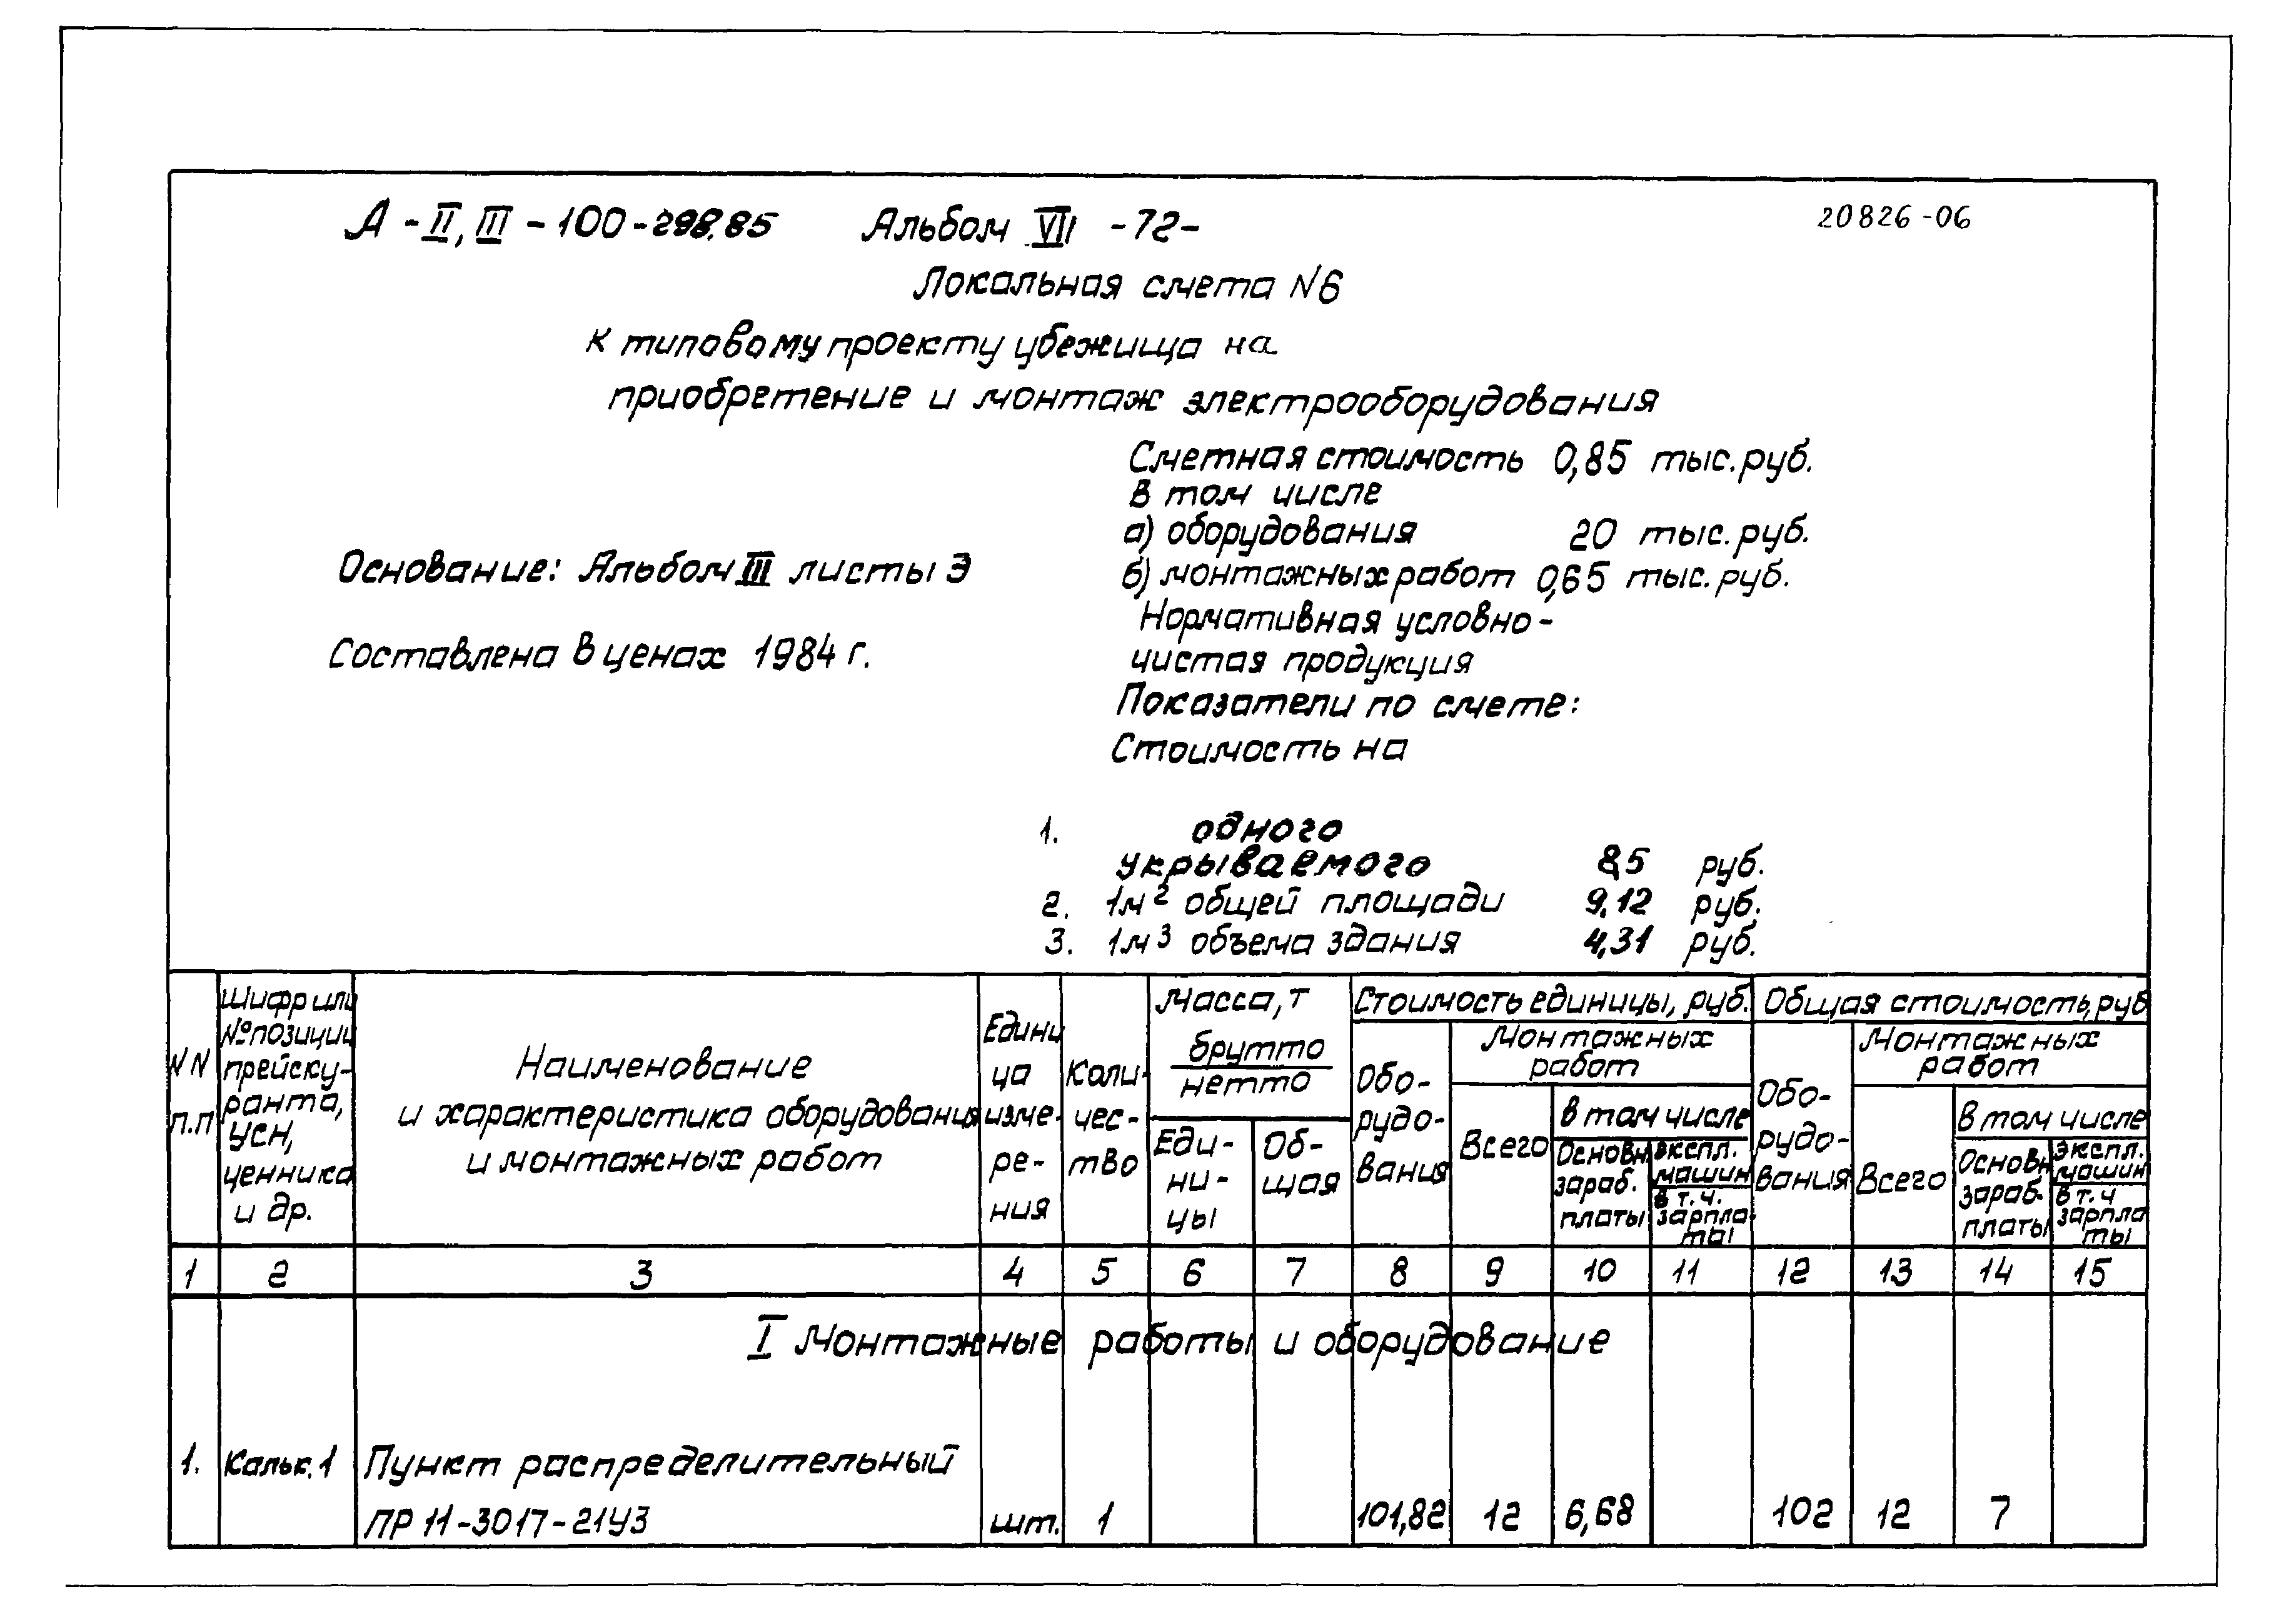 А - II, III - 100 - 298.85 Альбом VII - 72 - 20826-06
Локальная смета N6
к типовому проекту убежища на
приобретение и монтаж электрооборудования
Сметная стоимость 0,85 тыс. руб.
в том числе
а) оборудования 20 тыс. руб.
Основание: Альбом III листы Э
б) монтажных работ 0,65 тыс. руб.
Нормативная условно-
Составлена в ценах 1984 г.
чистая продукция
Показатели по смете:
Стоимость на
1. одного
укрываемого 8,5 руб.
2. 1м² общей площади 9,12 руб.
3. 1м³ объема здания 4,31 руб.
NN
п.п
Шифр или
№ позиции
прейску-
ранта,
УСН,
ценника
и др.
Наименование
и характеристика оборудования
и монтажных работ
Едини
ца
изме-
ре-
ния
Коли-
чес-
тво
Масса, т
брутто
нетто
Еди-
ни-
цы
Об-
щая
Стоимость единицы, руб.
Обо-
рудо-
вания
Монтажных
работ
Всего
в том числе
Основн
зараб.
платы
экспл.
машин
в т.ч.
зарпла-
ты
Общая стоимость, руб
Обо-
рудо-
вания
Монтажных
работ
Всего
в том числе
Основн
зараб.
платы
экспл.
машин
в т.ч
зарпла
ты
1 2 3 4 5 6 7 8 9 10 11 12 13 14 15
I Монтажные работы и оборудование
1. Кальк. 1 Пункт распределительный
ПР 11-3017-21У3 шт. 1 101,82 12 6,68 102 12 7